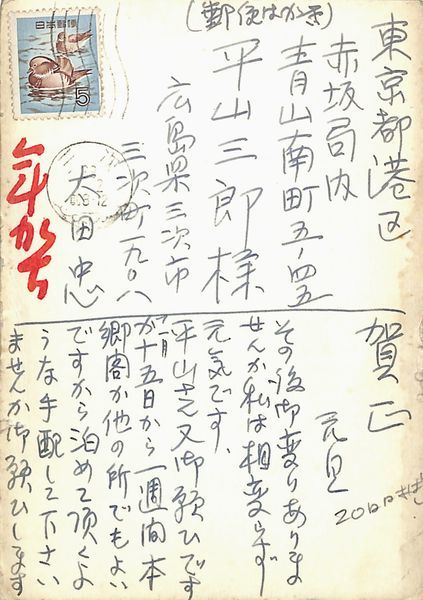 (郵便はがき)
日本郵便
5
東京都港区
赤坂局内
青山南町五ノ四五
平山三郎様
広島県三次市
三次町一九〇八
太田忠
年がち
賀正
元旦
その後御変りありま
せんか私は相変らず
元気です、
平山さん又御願ひです
が十一月十五日から一週間本
郷閣か他の所でもよい
ですから泊めて頂くよ
うな手配して下さい
ませんか御願ひします